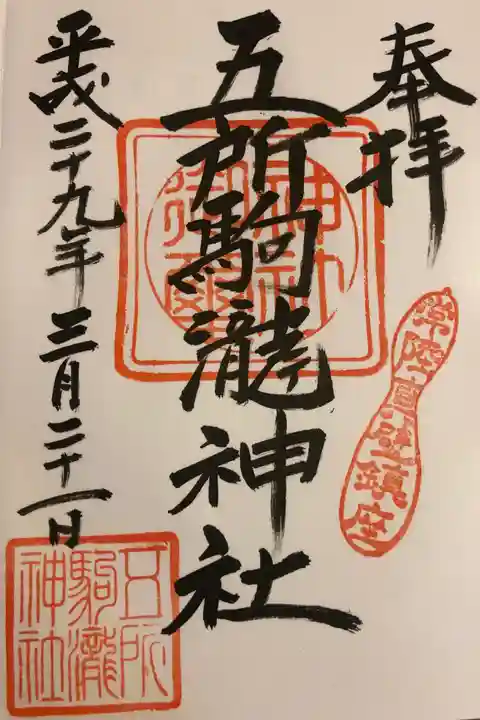 奉拝
常陸真壁鎮座
五所駒瀧神社
神社
平成二十九年三月二十一日
五所
駒瀧
神社